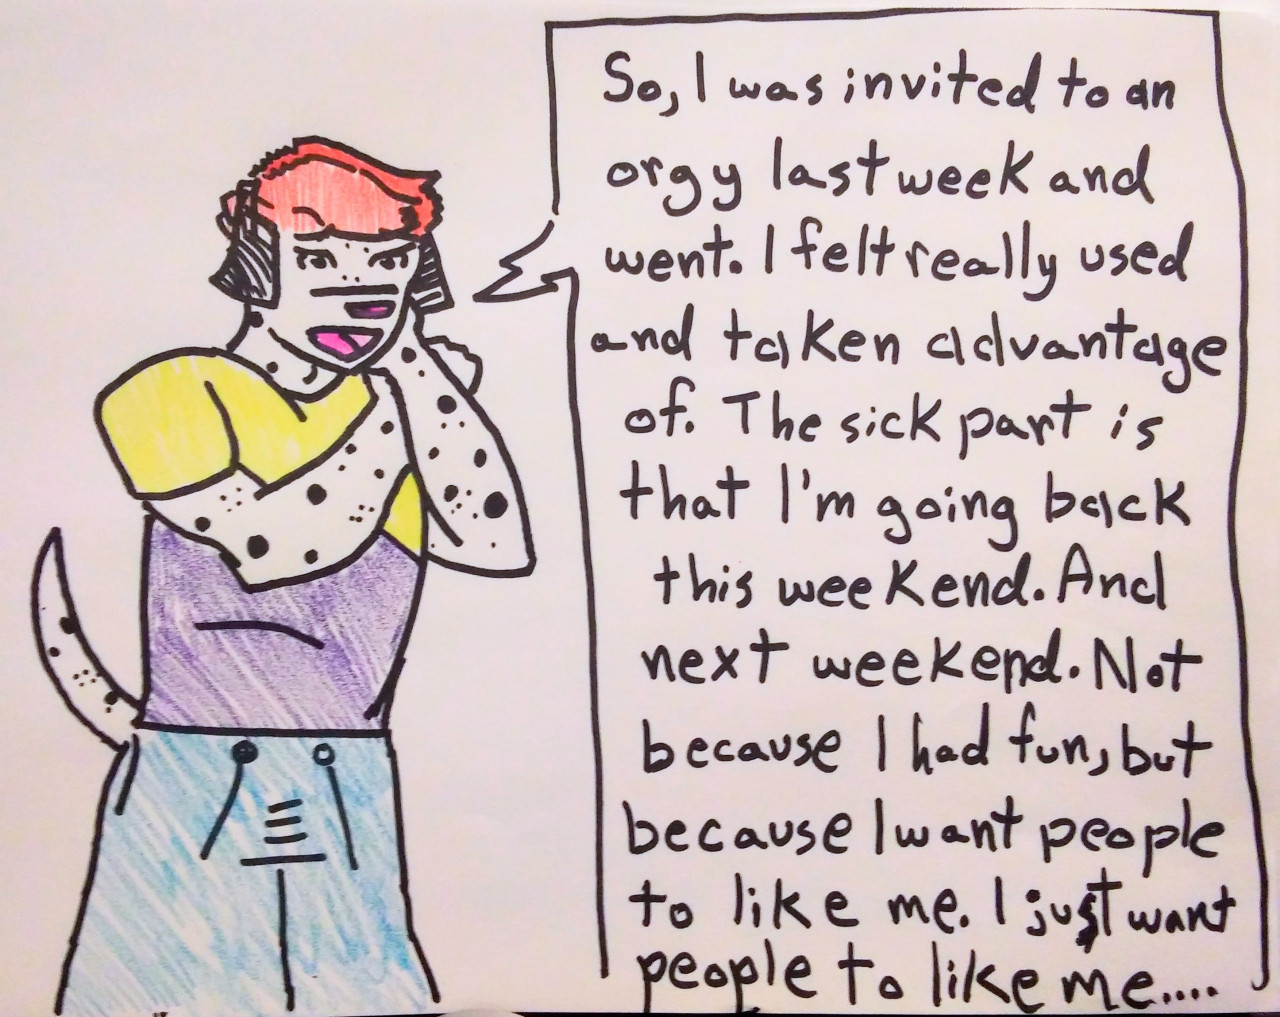 So, I was invited to an
orgy last week and
went. I felt really used
and taken advantage
of. The sick part is
that I'm going back
this weekend. And
next weekend. Not
because I had fun, but
because I want people
to like me. I just want
people to like me....